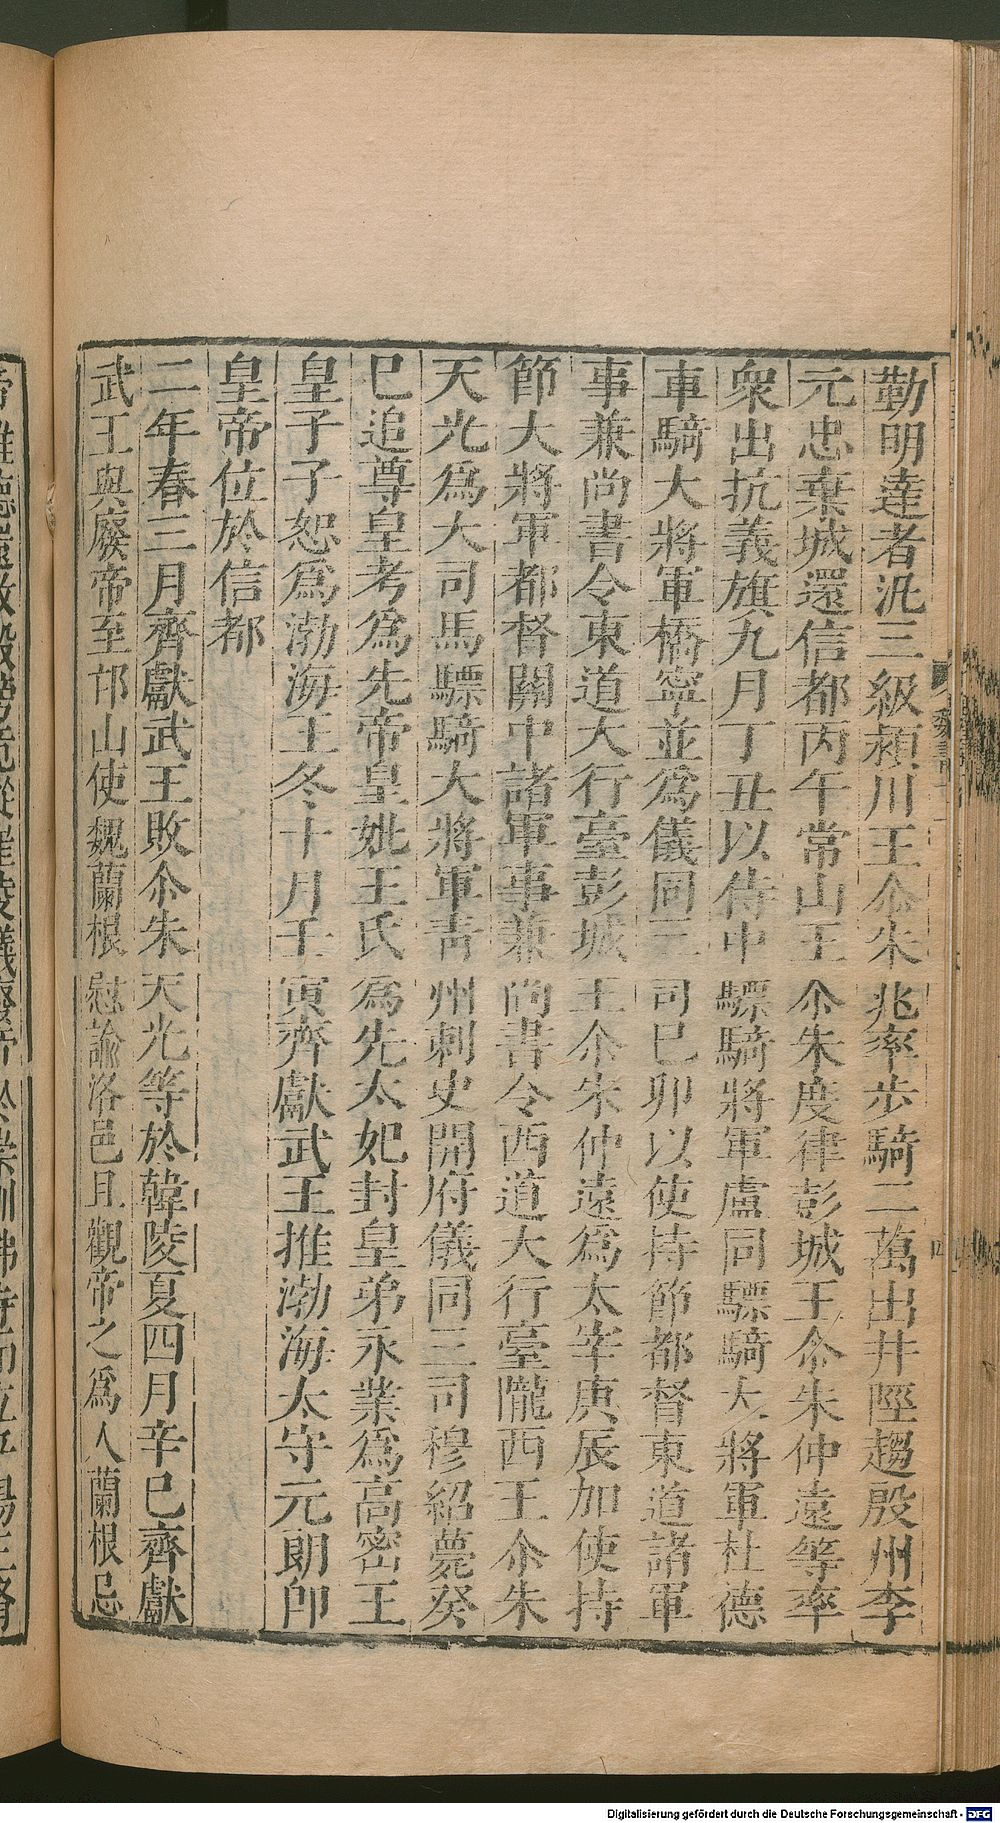 勤明達者汎三級潁川王尒朱兆率步騎二萬出井陘趨殷州李
元忠棄城還信都丙午常山王尒朱度律彭城王尒朱仲遠等率
衆出抗義旗九月丁丑以侍中驃騎將軍盧同驃騎大將軍杜德
車騎大將軍橋寧並爲儀同三司巳卯以使持節都督東道諸軍
事兼尚書令東道大行臺彭城王尒朱仲遠爲太宰庚辰加使持
節大將軍都督關中諸軍事兼尚書令西道大行臺隴西王尒朱
天光爲大司馬驃騎大將軍青州刺史開府儀同三司穆紹薨癸
巳追尊皇考爲先帝皇妣王氏爲先太妃封皇弟永業爲高密王
皇子子恕爲渤海王冬十月壬寅齊獻武王推渤海太守元朗卽
皇帝位於信都
二年春三月齊獻武王敗尒朱天光等於韓陵夏四月辛巳齊獻
武王與廢帝至邙山使魏蘭根慰諭洛邑且觀帝之爲人蘭根忌
Digitalisierung gefördert durch die Deutsche Forschungsgemeinschaft - DFG